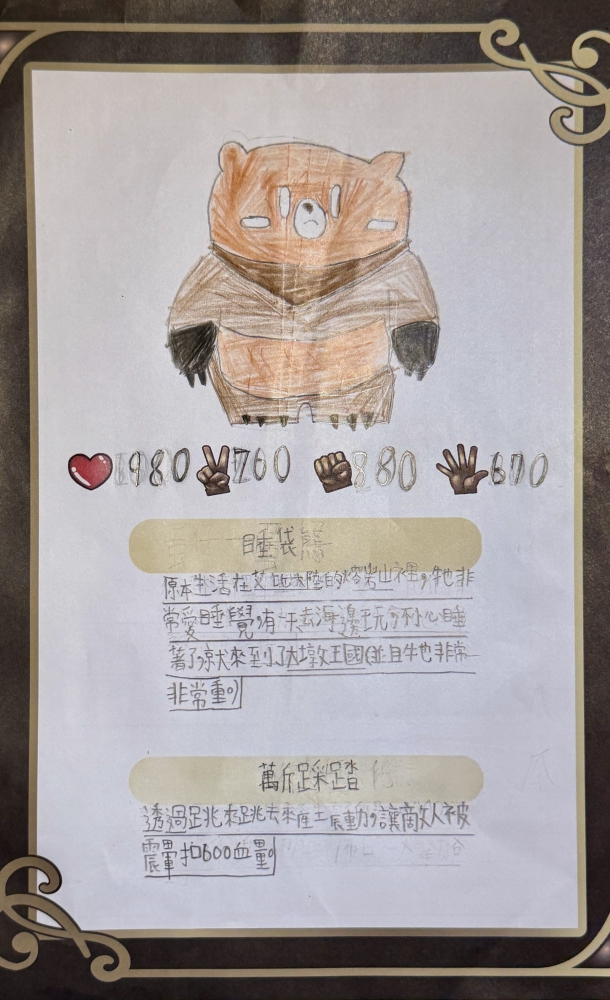 1980 760 880 670
睡袋熊
原本生活在艾地大陸的熔岩山裡,牠非
常愛睡覺,有一天去海邊玩,不小心睡
著了,就來到了大墩王國(並且牠也非常
非常重。)
萬斤踩踏
透過跳來跳去來產生震動,讓敵人被
震暈扣600血量。